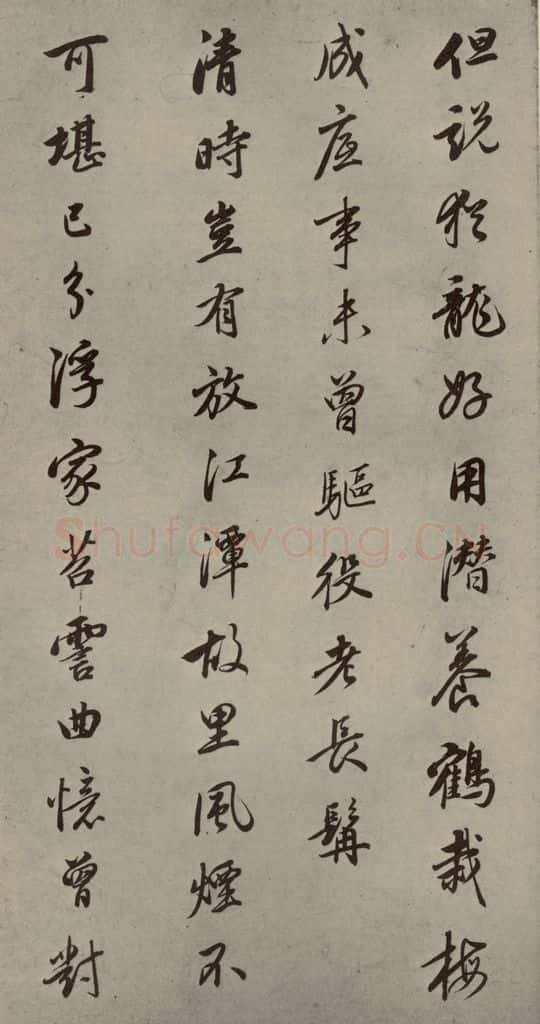 但説猶龍好用潜養鶴栽梅
成底事未曾驅役老長髯
清時豈有放江潭故里風煙不
可堪已分浮家苕霅曲憶曾對
Shufawang.CN